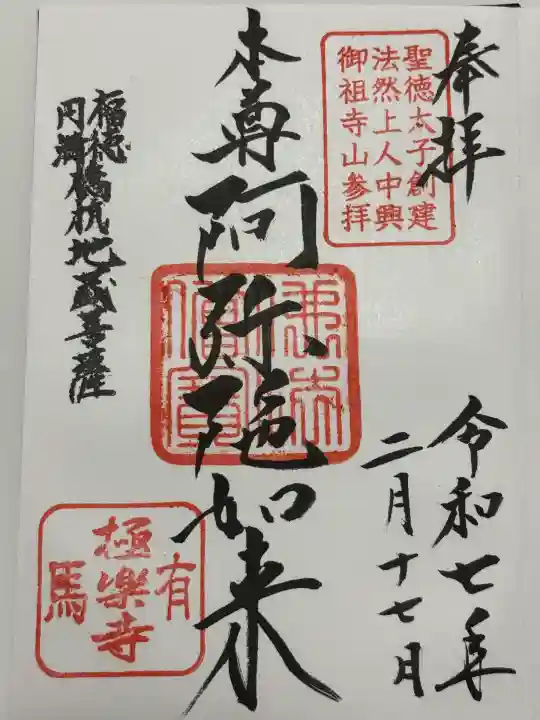 奉拝
聖徳太子創建
法然上人中興
御祖寺山参拝
令和七年
二月十七日
本尊阿弥陀如来
佛法僧寶
福徳
円満
地蔵菩薩
有
極楽寺
馬